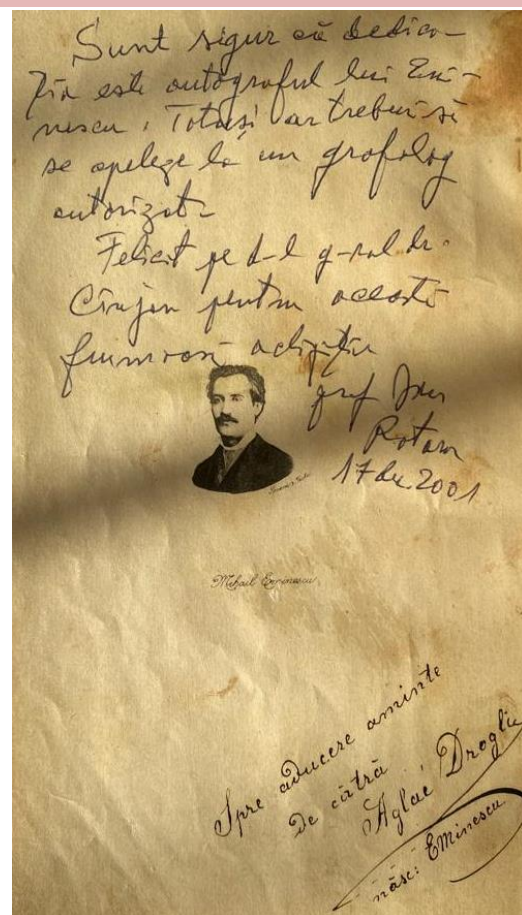 Sunt sigur că dedica-
ția este autograful lui Emi-
nescu. Totuși ar trebui să
se apeleze la un grafolog
autorizat.
Felicit pe d-l g-ral dr.
Cîrjan pentru această
frumoasă achiziție
prof Ion
Rotaru
17 dec. 2001
Mihail Eminescu
Spre aducere aminte
De cătră
Aglaé Drogliu
născ: EMinescu